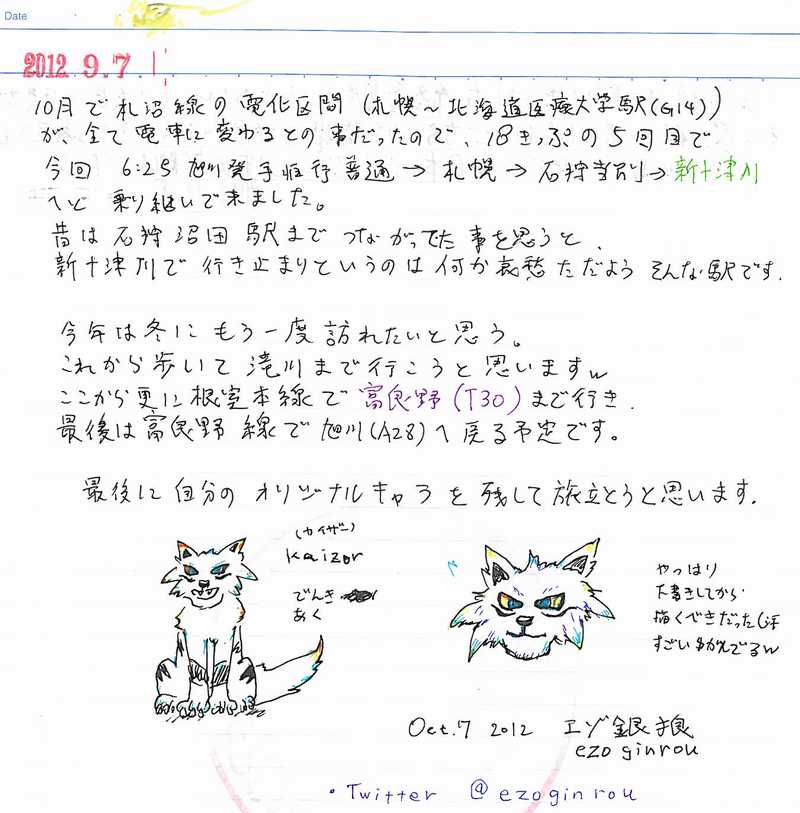 Date
2012 9.7.
10月で札沼線の電化区間(札幌~北海道医療大学駅(G14))
が、全て電車に変わるとの事だったので、18きっぷの5回目で
今回 6:25 旭川発手稲行普通→札幌→石狩当別→新十津川
へと乗り継いで来ました。
昔は石狩沼田駅までつながってた事を思うと、
新十津川で行き止まりというのは何か哀愁ただようそんな駅です.
今年は冬にもう一度訪れたいと思う。
これから歩いて滝川まで行こうと思いますw
ここから更に根室本線で富良野(T30)まで行き.
最後は富良野線で旭川(A28)へ戻る予定です。
最後に自分のオリジナルキャラを残して旅立とうと思います.
(カイザー)
Kaizer
でんき
あく
やっはり
下書きしてから
描くべきだった(汗
すごいゆがんでるw
Oct.7 2012 エゾ銀狼
ezo ginrou
・Twitter @ezoginrou